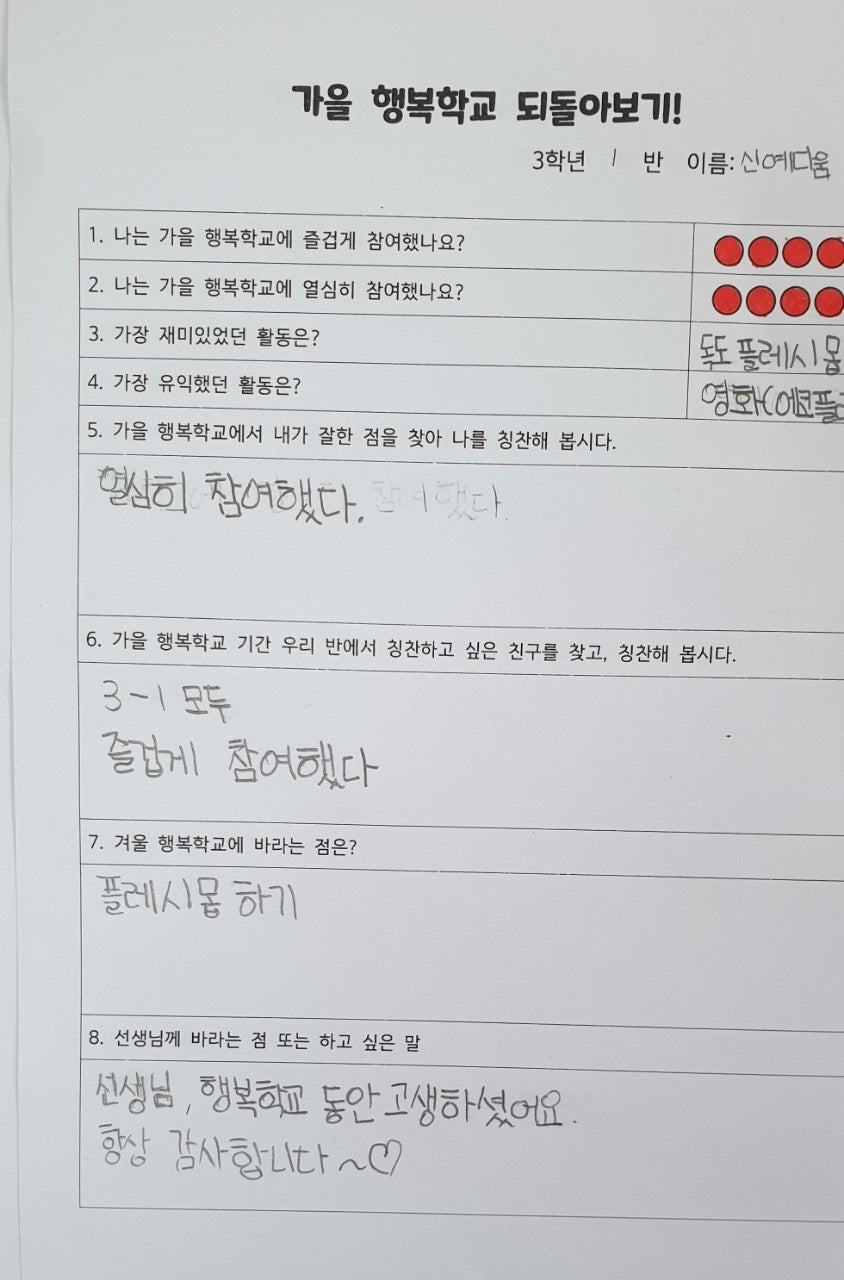 가을 행복학교 되돌아보기!
3학년 1 반 이름: 신예디움
1. 나는 가을 행복학교에 즐겁게 참여했나요?
2. 나는 가을 행복학교에 열심히 참여했나요?
3. 가장 재미있었던 활동은? 독도 플레시몹
4. 가장 유익했던 활동은? 영화(에코플
5. 가을 행복학교에서 내가 잘한 점을 찾아 나를 칭찬해 봅시다.
열심히 참여했다. 참여했다.
6. 가을 행복학교 기간 우리 반에서 칭찬하고 싶은 친구를 찾고, 칭찬해 봅시다.
3-1 모두
즐겁게 참여했다
7. 겨울 행복학교에 바라는 점은?
플레시몹 하기
8. 선생님께 바라는 점 또는 하고 싶은 말
선생님, 행복학교 동안 고생하셨어요.
항상 감사합니다~♡